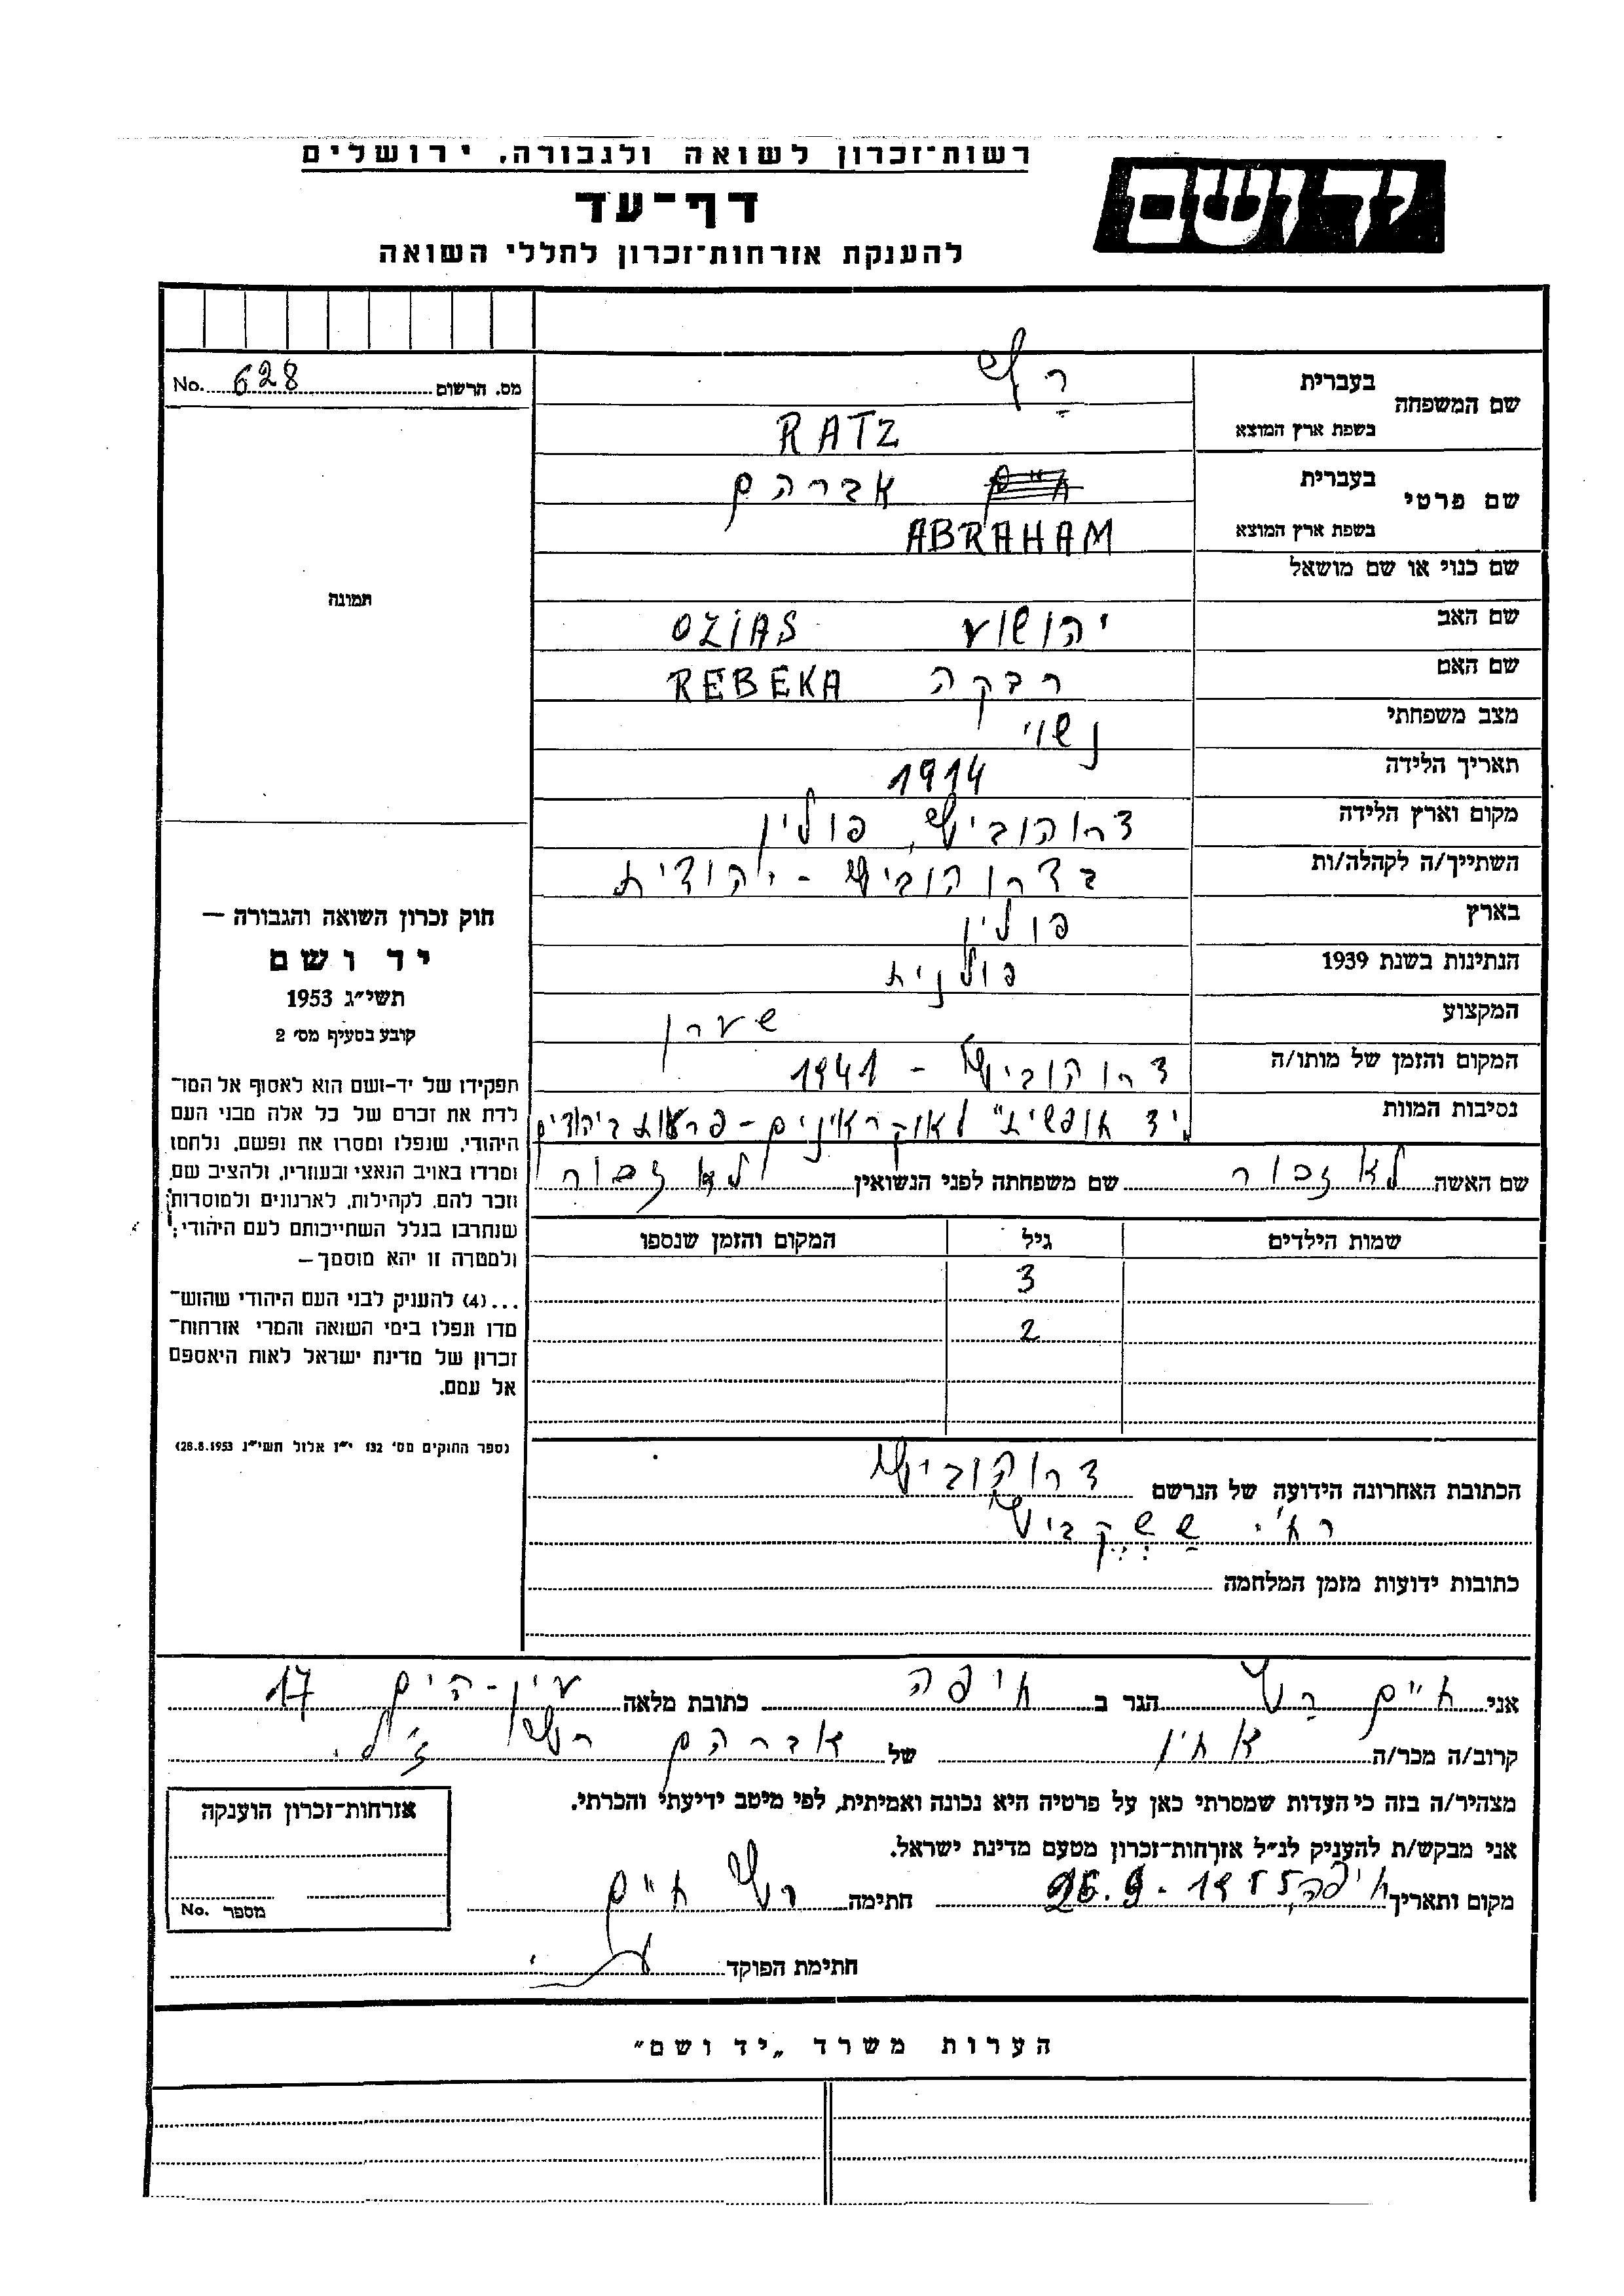 רשות־זכרון לשואה ולגבורה, ירושלים
יד ושם
דף־עד
להענקת אזרחות־זכרון לחללי השואה
מס. הרשום 628 No.
שם המשפחה בעברית רץ
בשפת ארץ המוצא RATZ
שם פרטי בעברית אברהם
בשפת ארץ המוצא ABRAHAM
שם כנוי או שם מושאל
שם האב יהושוע OZIAS
שם האם רבקה REBEKA
מצב משפחתי נשוי
תאריך הלידה 1914
מקום וארץ הלידה דרוהוביץ, פולין
השתייך/ה לקהלה/ות בדרוהוביץ - יהודית
בארץ פולין
הנתינות בשנת 1939 פולנית
המקצוע שען
המקום והזמן של מותו/ה דרוהוביץ - 1941
נסיבות המוות "יד חופשית" לאוקראינים - פרעות ביהודים
שם האשה לא זכור שם משפחתה לפני הנשואין לא זכור
שמות הילדים גיל המקום והזמן שנספו
3
2
הכתובת האחרונה הידועה של הנרשם דרוהוביץ
רח'
כתובות ידועות מזמן המלחמה
תמונה
חוק זכרון השואה והגבורה —
יד ושם
תשי״ג 1953
קובע בסעיף מס׳ 2
תפקידו של יד-ושם הוא לאסוף אל המו־
לדת את זכרם של כל אלה מבני העם
היהודי, שנפלו ומסרו את נפשם, נלחמו
ומרדו באויב הנאצי ובעוזריו, ולהציב שם
וזכר להם, לקהילות, לארגונים ולמוסדות
שנחרבו בגלל השתייכותם לעם היהודי;
ולמטרה זו יהא מוסמך —
...(4) להעניק לבני העם היהודי שהוש־
מדו ונפלו בימי השואה והמרי אזרחות־
זכרון של מדינת ישראל לאות היאספם
אל עמם.
(ספר החוקים מס׳ 132 י״ז אלול תשי״ג 28.8.1953)
אני חיים רץ הגר ב חיפה כתובת מלאה עין-הים 17
קרוב/ה מכר/ה אחיו של אברהם רץ ז"ל.
מצהיר/ה בזה כי העדות שמסרתי כאן על פרטיה היא נכונה ואמיתית, לפי מיטב ידיעתי והכרתי.
אני מבקש/ת להעניק לנ״ל אזרחות־זכרון מטעם מדינת ישראל.
מקום ותאריך חיפה, 26.9.1955 חתימה רץ חיים
חתימת הפוקד
אזרחות־זכרון הוענקה
מספר No.
הערות משרד „יד ושם״